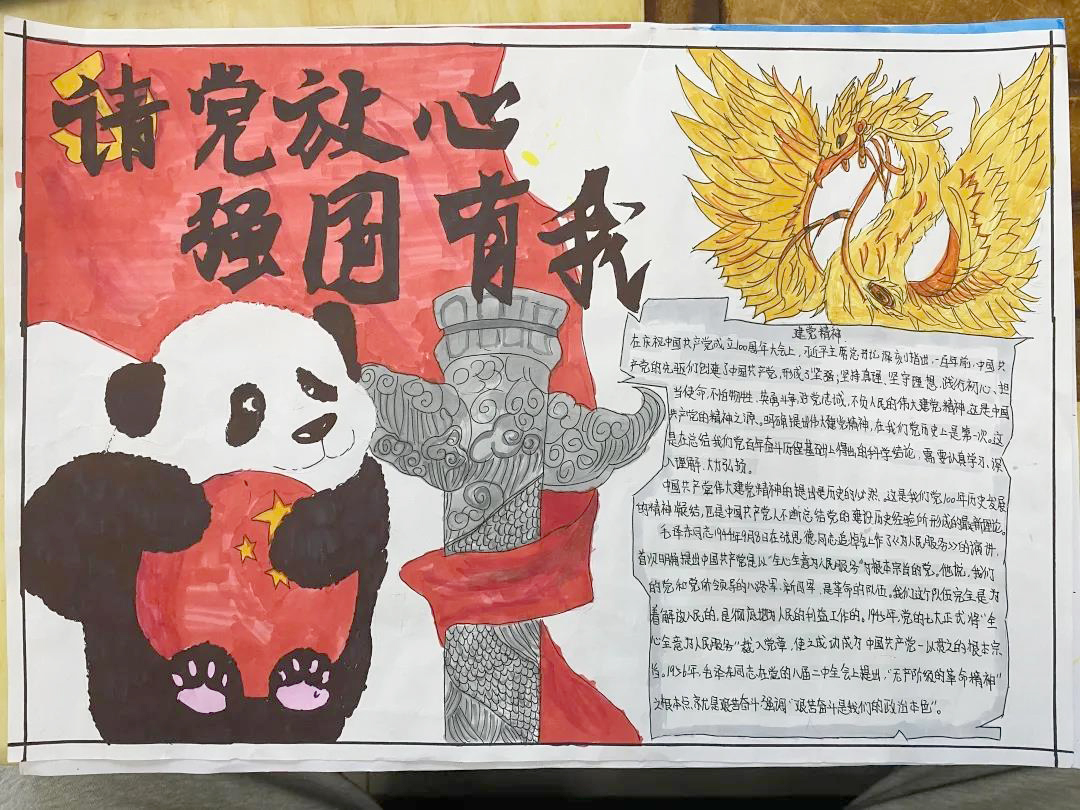 请党放心
强国有我
建党精神
在庆祝中国共产党成立100周年大会上，习近平主席总书记深刻指出，一百年前，中国共
产党的先驱们创建了中国共产党，形成了坚持真理、坚守理想，践行初心、担
当使命，不怕牺牲、英勇斗争，对党忠诚、不负人民的伟大建党精神，这是中国
共产党的精神之源。明确提出伟大建党精神，在我们党历史上是第一次。这
是在总结我们党百年奋斗历程基础上得出的科学结论，需要认真学习、深
入理解、大力弘扬。
中国共产党伟大建党精神的提出是历史的必然。这是我们党100年历史发展
的精神凝结，也是中国共产党人不断总结党的建设历史经验所形成的最新理论。
毛泽东同志1944年9月8日在张思德同志追悼会上作了《为人民服务》的演讲，
首次明确提出中国共产党是以“全心全意为人民服务”为根本宗旨的党。他说，我们
的党和党所领导的八路军、新四军，是革命的队伍。我们这个队伍完全是为
着解放人民的，是彻底地为人民的利益工作的。1945年，党的七大正式将“全
心全意为人民服务”载入党章，使之成功成为中国共产党一以贯之的根本宗
旨。1956年，毛泽东同志在党的八届二中全会上提出，“无产阶级的革命精神”
之根本点就是艰苦奋斗，强调“艰苦奋斗是我们的政治本色”。